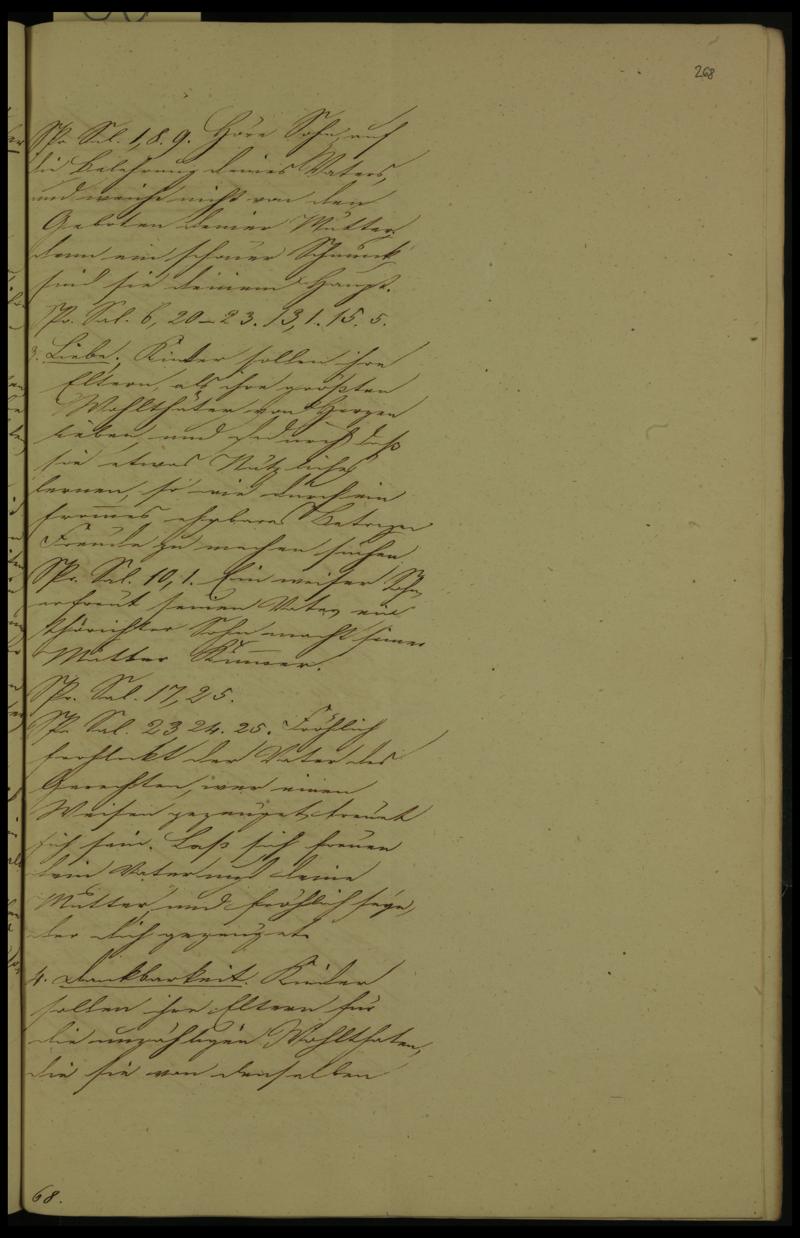 268
Spr. Sal. 1, 8. 9. Höre Sohn, auf
die Belehrung deines Vaters,
und weiche nicht von den
Geboten deiner Mutter,
denn ein schöner Schmuck
sind sie deinem Haupt.
Spr. Sal. 6, 20–23. 13, 1. 15, 5.
3. Liebe. Kinder sollen ihre
Eltern, als ihre größten
Wohlthäter von Herzen
lieben, und daß
sie etwas Nützliches
lernen, so wie durch ein
from̅es ehrbares Betragen
Freude zu machen suchen
Spr. Sal. 10, 1. Ein weiser Sohn
erfreut seinen Vater, ein
thörichter Sohn macht seiner
Mutter Kum̅er.
Spr. Sal. 17, 25.
Spr. Sal. 23, 24. 25. Fröhlich
frohlockt der Vater des
Gerechten, wer einen
Weisen gezeuget, freuet
sich sein. Laß sich freuen
dein Vater und deine
Mutter, und fröhlich seyn,
der dich gezeuget.
4. Dankbarkeit. Kinder
sollen ihre Eltern für
die unzähligen Wohlthaten,
die sie von denselben
68.